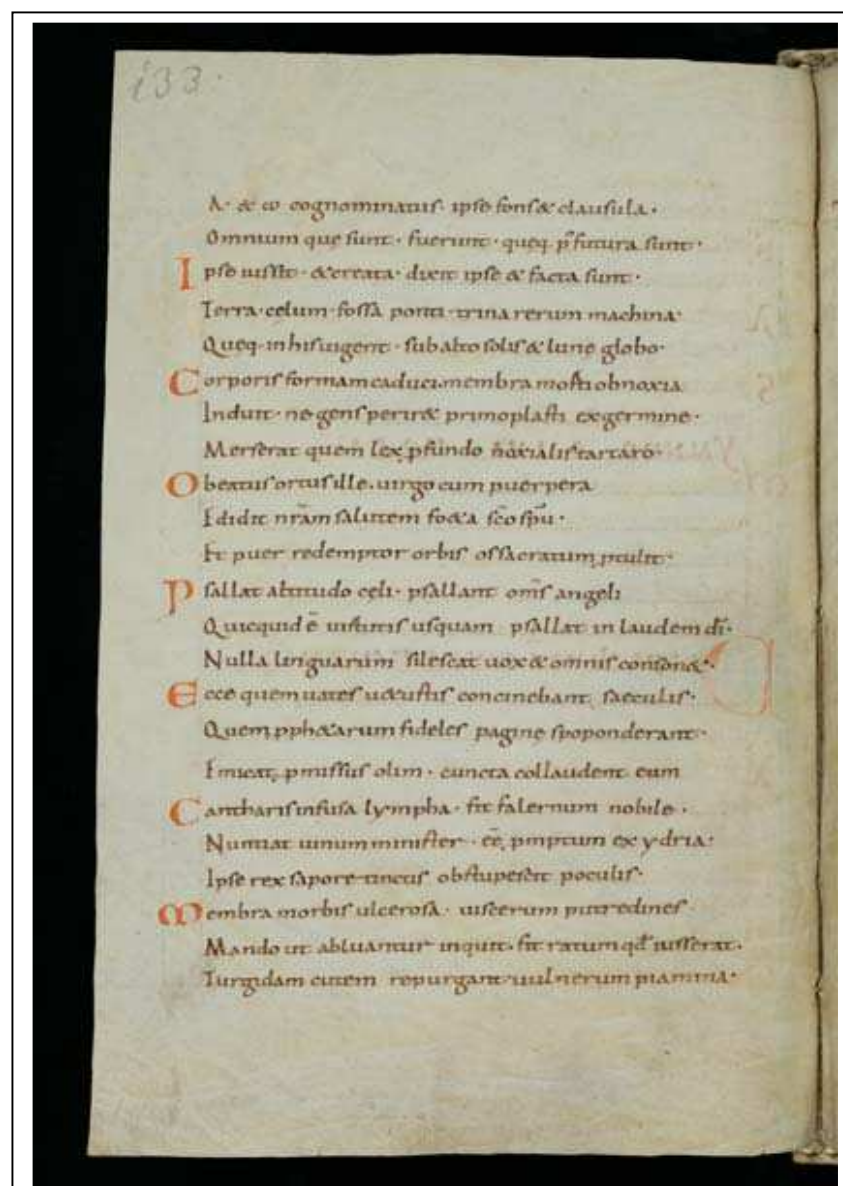 i33.
A · & ω cognominatus · ipse fons & clausula ·
Omnium que sunt · fuerunt · queq. p̄ futura sunt ·
Ipse iussit · & creata · dixit ipse & facta sunt ·
Terra · celum · fossa ponti · trina rerum machina ·
Queq · in his uigent · sub alto solis & lune globo ·
Corporis formam caduci. membra morti obnoxia
Induit · ne gens perir& primoplasti ex germine ·
Merserat quem lex pfundo noxialis tartaro ·
O beatus ortus ille. uirgo cum puerpera
Edidit nr̄am salutem foeta sc̄o sp̄u ·
Et puer redemptor orbis os sacratum ptulit ·
Psallat altitudo celi · psallant om̄s angeli
Quicquid ē uirtutis usquam psallat in laudem dī ·
Nulla linguarum silescat uox & omnis conson& ·
Ecce quem uates u&ustis concinebant saeculis ·
Quem pph&arum fideles pagine spoponderant ·
Emicat pmissus olim · cuncta collaudent eum
Cantharis infusa lympha · fit falernum nobile ·
Nuntiat uinum minister · eē pmptum ex ydria ·
Ipse rex sapore tinctis obstupescit poculis ·
Membra morbis ulcerosa · uiscerum putredines
Mando ut abluantur inquit · fit ratum qđ iusserat ·
Turgidam cutem repurgant uulnerum piamina ·